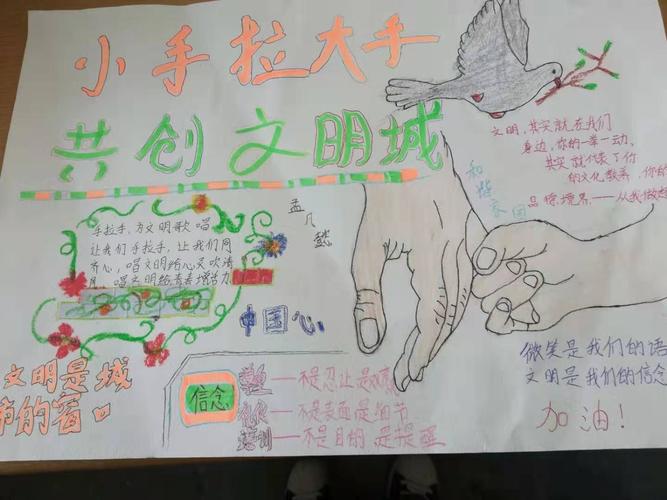 小手拉大手
共创文明城
文明,其实就在我们
身边,你的一举一动,
其实就代表了你
的文化教养,你的
品德,境界——从我做起
和谐家园
孟凡懿
手拉手,为文明歌唱
让我们手拉手,让我们同
齐心,唱文明给心灵吹清
风,唱文明给青春增活力
中国心
文明是城
市的窗口
信念
——不是忍让是
——不是表面是细节
培训——不是目的,是提醒
微笑是我们的语
文明是我们的信念
加油!